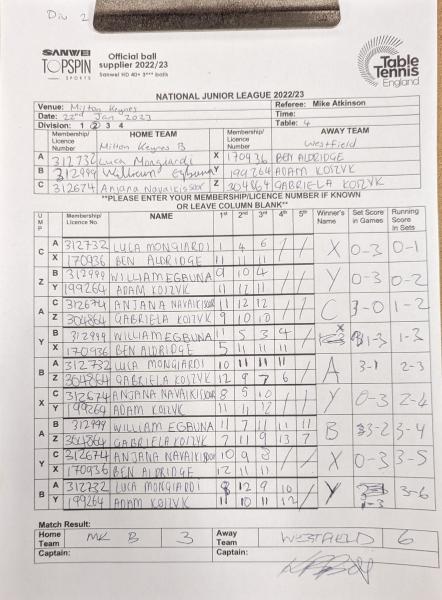 Div 2
SANWEI
TOPSPIN
SPORTS
Official ball
supplier 2022/23
Sanwei HD 40+ 3*** balls
Table
Tennis
England
NATIONAL JUNIOR LEAGUE 2022/23
Venue: Milton Keynes Referee: Mike Atkinson
Date: 22nd Jan 2023 Time:
Division: 1 2 3 4 Table: 4
Membership/ Licence Number HOME TEAM Milton Keynes B Membership/ Licence Number AWAY TEAM Westfield
A 312732 Luca Mongiardi X 170936 BEN ALDRIDGE
B 312999 William Egbuna Y 199264 ADAM KOIZVK
C 312674 Anjana Navaikissoor Z 304864 GABRIELA KOIZVK
**PLEASE ENTER YOUR MEMBERSHIP/LICENCE NUMBER IF KNOWN
OR LEAVE COLUMN BLANK**
UMP Membership/ Licence No. NAME 1st 2nd 3rd 4th 5th Winner's Name Set Score in Games Running Score in Sets
C A 312732 LUCA MONGIARDI 1 4 6 / / X 0-3 0-1
X 170936 BEN ALDRIDGE 11 11 11
Z B 312999 WILLIAM EGBUNA 9 10 4 / / Y 0-3 0-2
Y 199264 ADAM KOIZVK 11 12 11
A C 312674 ANJANA NAVAIKISSOOR 11 12 12 / / C 3-0 1-2
Z 304864 GABRIELA KOIZVK 9 10 10
Y B 312999 WILLIAM EGBUNA 11 5 3 4 / X 1-3 1-3
X 170936 BEN ALDRIDGE 5 11 11 11
B A 312732 LUCA MONGIARDI 10 11 11 11 / A 3-1 2-3
Z 304864 GABRIELA KOIZVK 12 9 7 6
X C 312674 ANJANA NAVAIKISSOOR 8 5 10 / / Y 0-3 2-4
Y 199264 ADAM KOIZVK 11 11 12
A B 312999 WILLIAM EGBUNA 11 7 11 11 11 B 3-2 3-4
Z 304864 GABRIELA KOIZVK 7 11 9 13 7
Y C 312674 ANJANA NAVAIKISSOOR 10 9 8 / / X 0-3 3-5
X 170936 BEN ALDRIDGE 12 11 11
B A 312732 LUCA MONGIARDI 8 12 9 10 / Y 1-3 3-6
Y 199264 ADAM KOIZVK 11 10 11 12
Match Result:
Home Team MK B 3 Away Team WESTFIELD 6
Captain: Captain: